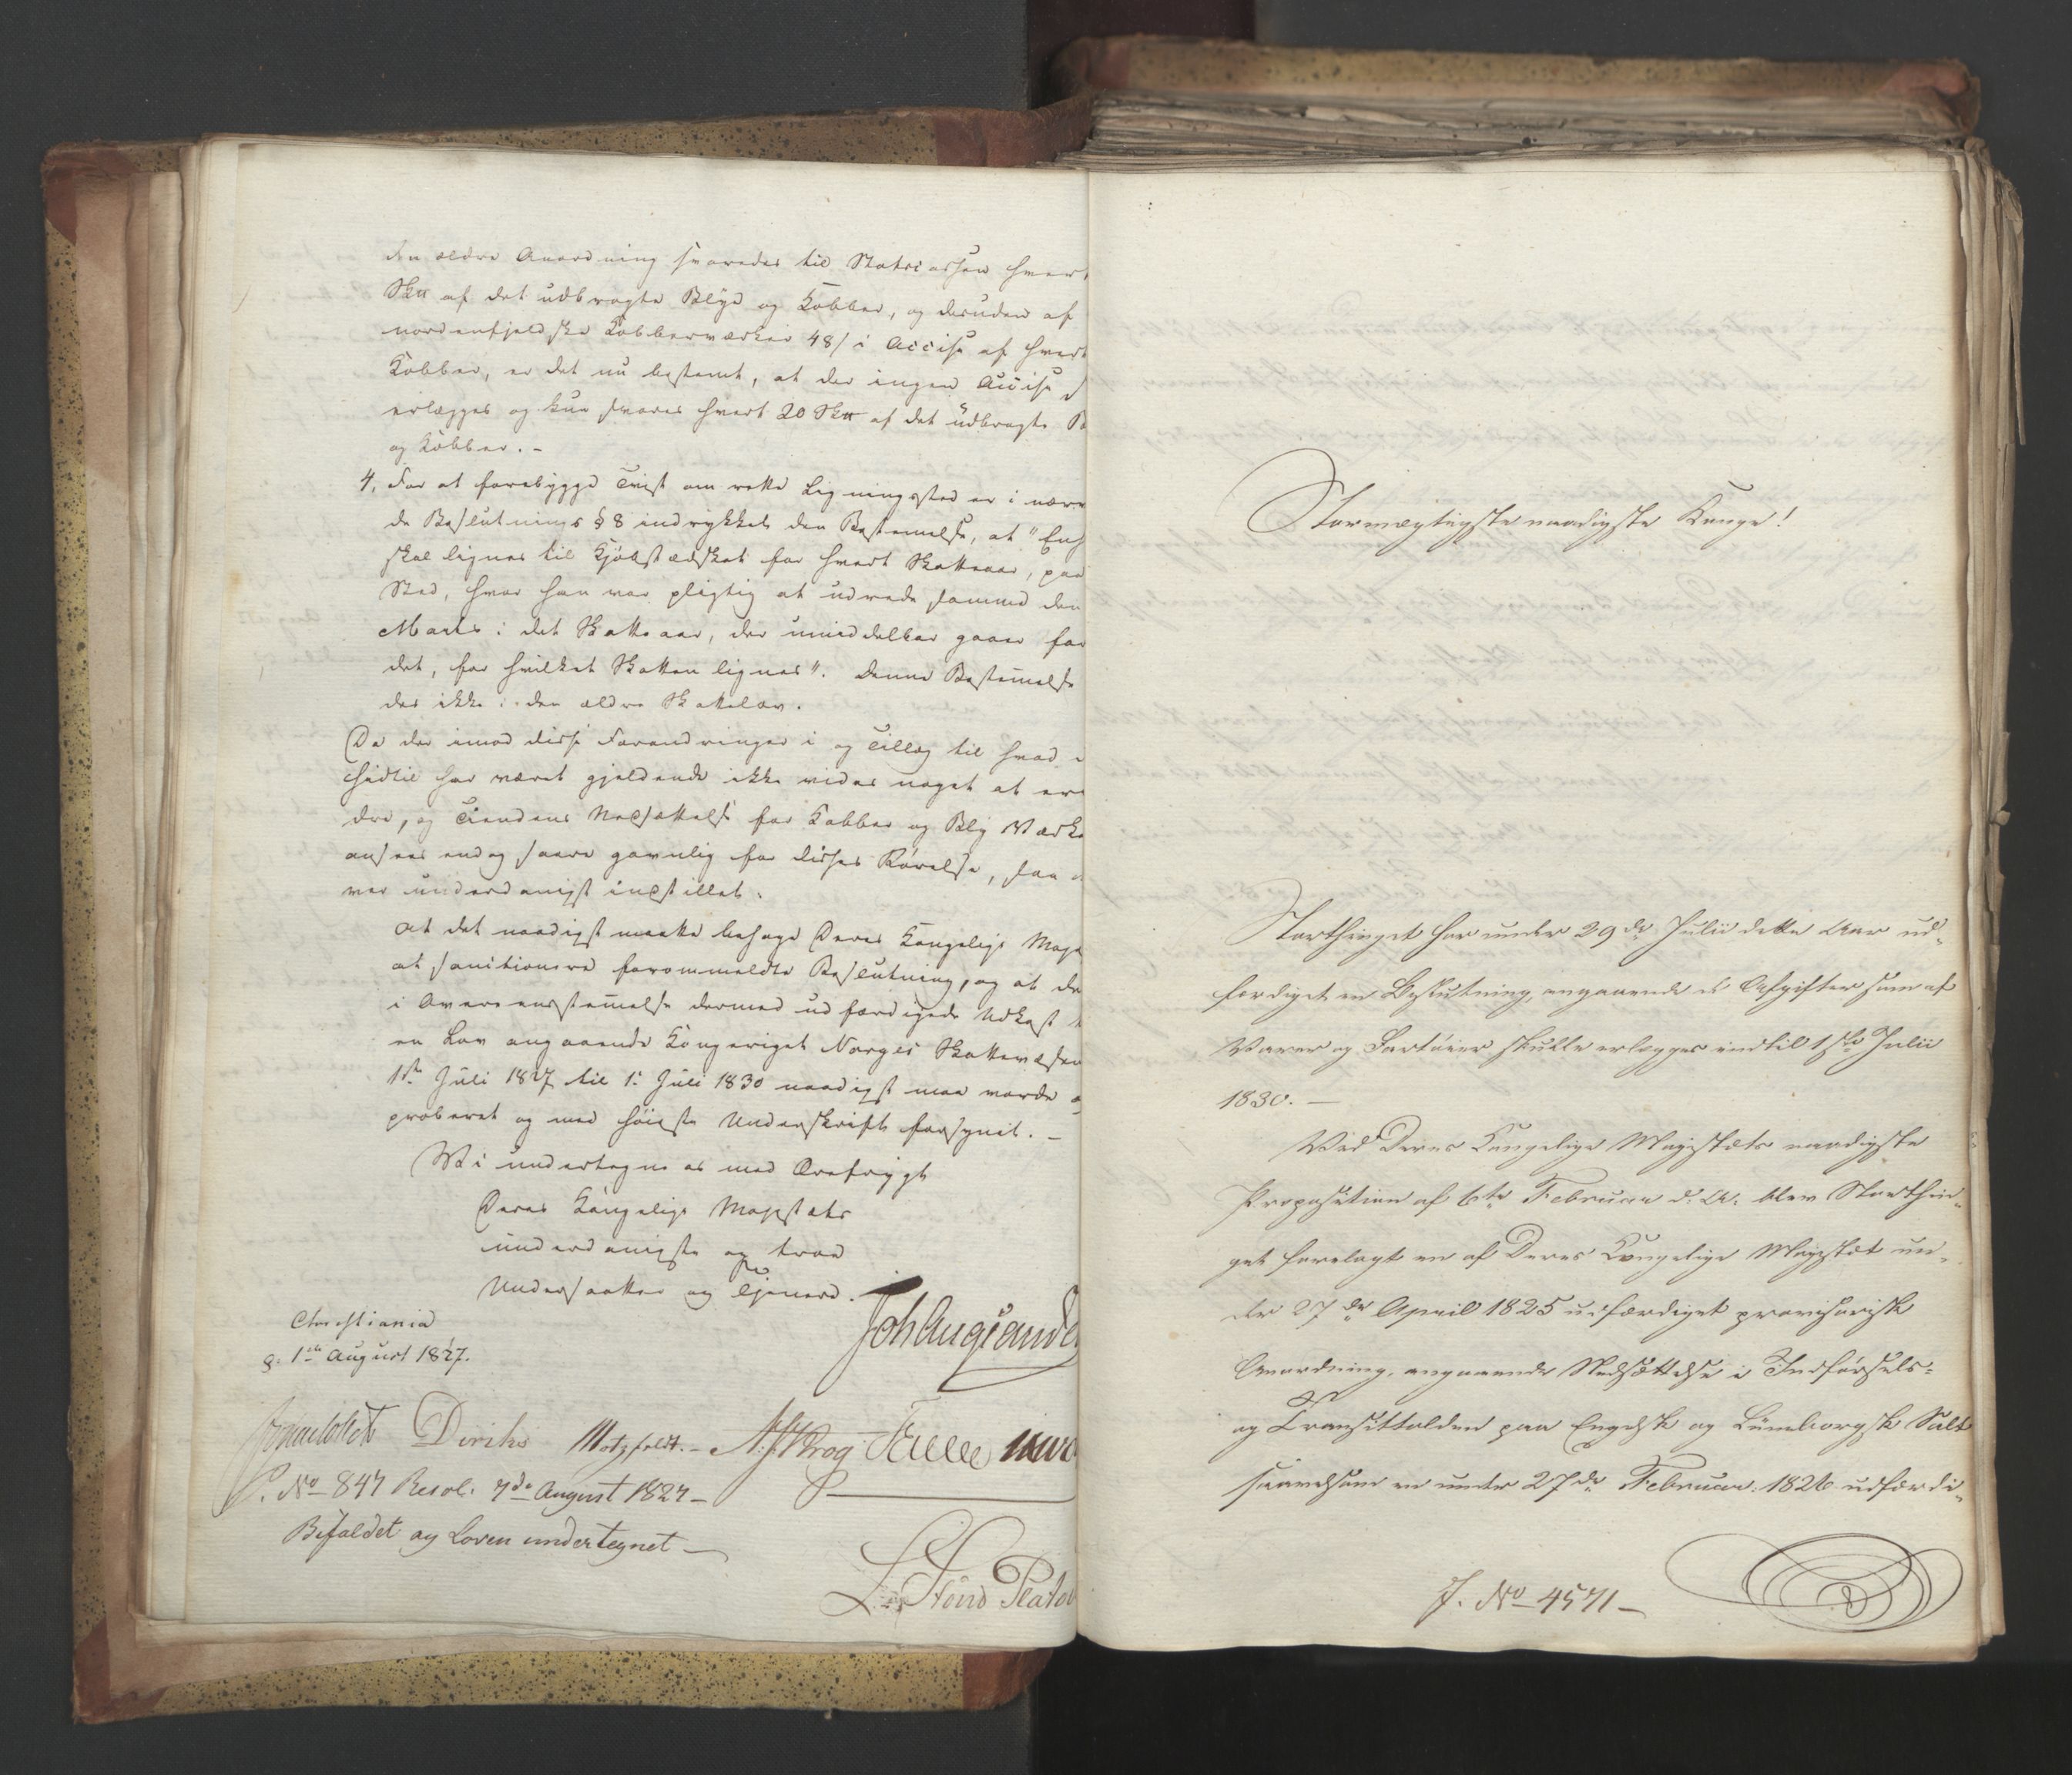 den ældre Anordning svaredes til Statscassen hvert
Sk℔ af det udbragte Blye og Kobber, og desuden af
nordenfjeldske Kobberværker 48/ i Accise af hvert
Kobber, er det nu bestemt, at der ingen Accise
erlægges og kun svares hvert 20 Sk℔ af det udbragte
og Kobber. -
4, For at forebygge Tvist om rette Ligningssted er i nærv
de Beslutnings § 8 indrykket den Bestemmelse, at "Enh
skal lignes til Kjöbstædskat for hvert Skatteaar, paa
Sted, hvor han var pligtig at udrede samme den
Marts i det Skatteaar, der umiddelbar gaaer for
det, for hvilket Skatten lignes". Denne Bestemelse
des ikke i den ældre Skattelov.
Da der imod disse Forandringer i og Tillæg til hvad
hidtil har været gjeldende ikke vides noget at eri
dre, og Tiendens Nedsættelse for Kobber og Bly Værke
ansees endog saare gavnlig for disses Rörelse, saa
ver underdanigst indstillet.
at det naadigst maatte behage Deres Kongelige Maje
at sanctionere forommeldte Beslutning, og at de
i Overeensstemelse dermed udfærdigede Udkast
en Lov angaaende Kongeriget Norges Skattevæsen
1ste Juli 1827 til 1. Juli 1830 naadigst maa vorde
proberet og med höieste Underskrift forsynet. -
Vi undertegne os med Ærefrygt
Deres Kongelige Majestæts
underdanigste og troe
Undersaatter og Tjenere.
Christiania
d. 1ste August 1827.
Diriks Motzfeldt. - Krog
P. No 847 Resol. 7de August 1827 -
Bifaldet og Loven undertegnet -
Stormægtigste naadigste Konge!
Storthinget har under 29de Julii dette Aar ud-
færdiget en Beslutning, angaaende de Afgifter som af
Varer og Fartöier skulle erlægges indtil 1ste Julii
1830. -
Ved Deres Kongelige Majestæts naadigste
Proposition af 6te Februar d. A. blev Storthin-
get forelagt en af Deres Kongelige Majestæt un-
der 27de April 1825 udfærdiget provisorisk
Anordning, angaaende Nedsættelse i Indförsels-
og Transittolden paa Engelsk og Lüneborgsk Salt
saavelsom en under 27de Februar 1826 udfærdi-
J. No 4571 -